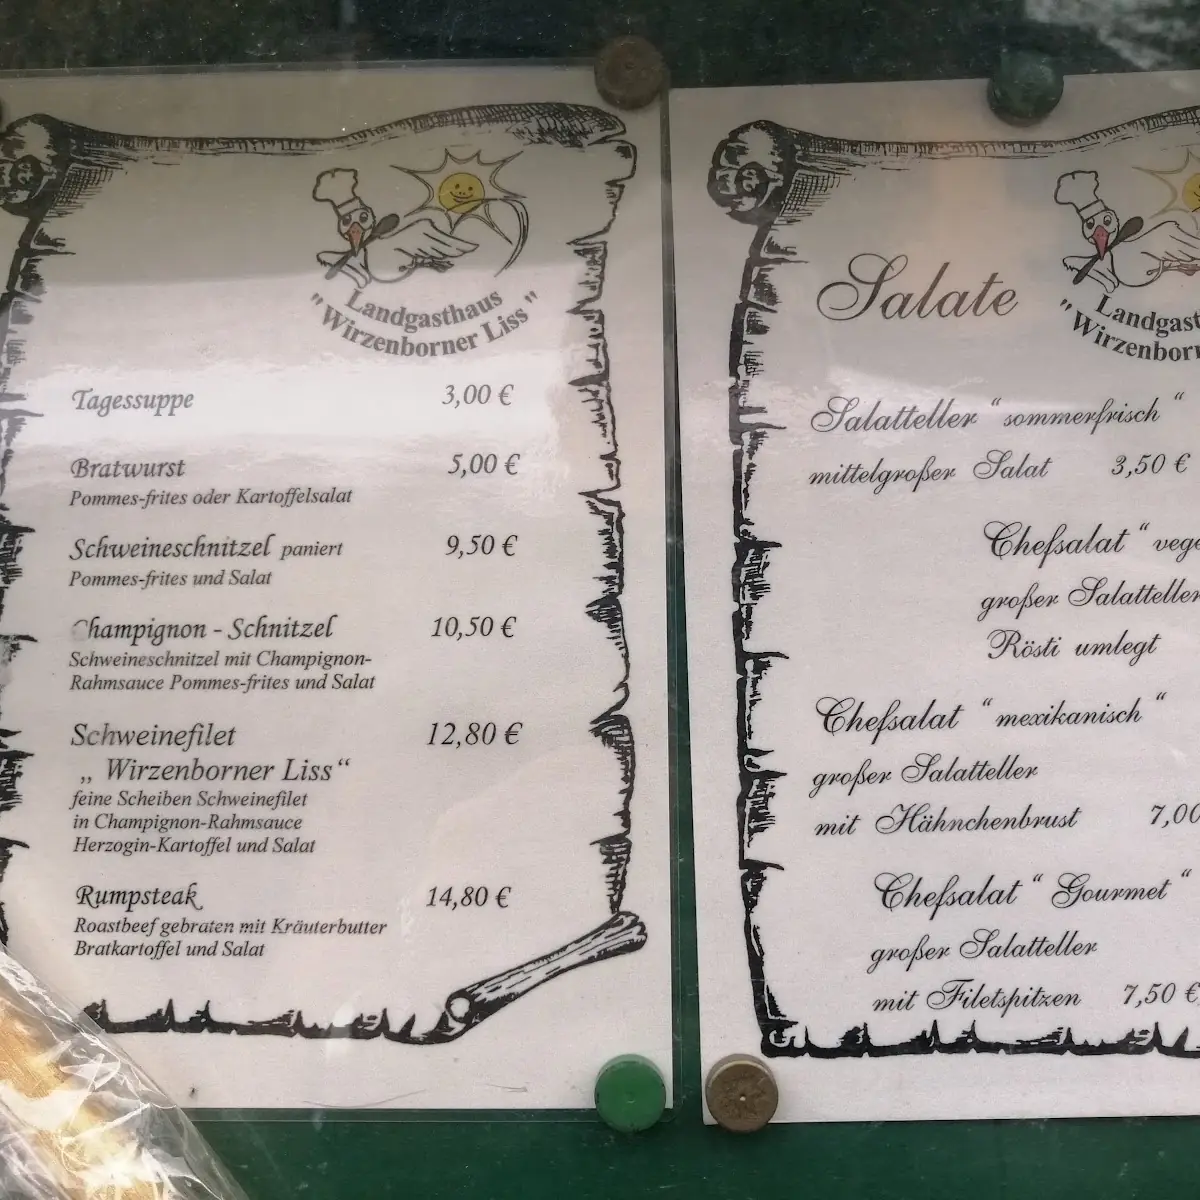 Landgasthaus
"Wirzenborner Liss"
Tagessuppe 3,00 €
Bratwurst 5,00 €
Pommes-frites oder Kartoffelsalat
Schweineschnitzel paniert 9,50 €
Pommes-frites und Salat
Champignon - Schnitzel 10,50 €
Schweineschnitzel mit Champignon-
Rahmsauce Pommes-frites und Salat
Schweinefilet 12,80 €
„ Wirzenborner Liss“
feine Scheiben Schweinefilet
in Champignon-Rahmsauce
Herzogin-Kartoffel und Salat
Rumpsteak 14,80 €
Roastbeef gebraten mit Kräuterbutter
Bratkartoffel und Salat
Salate
Salatteller “ sommerfrisch “
mittelgroßer Salat 3,50 €
Chefsalat “
großer Salatteller
Rösti umlegt
Chefsalat “ mexikanisch “
großer Salatteller
mit Hähnchenbrust 7,00
Chefsalat “ Gourmet “
großer Salatteller
mit Filetspitzen 7,50 €